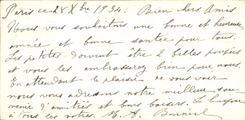 Paris ce 28 Xbre 1934. Bien chers Amis
Nous vous souhaitons une bonne et heureuse
année et bonne santé pour tous.
Les petites doivent être 2 belles poupées
et vous les embrasserez bien pour nous.
En attendant le plaisir de vous voir
nous vous adressons notre meilleur souvenir
d'amitiés et bons baisers.
à tous les vôtres.